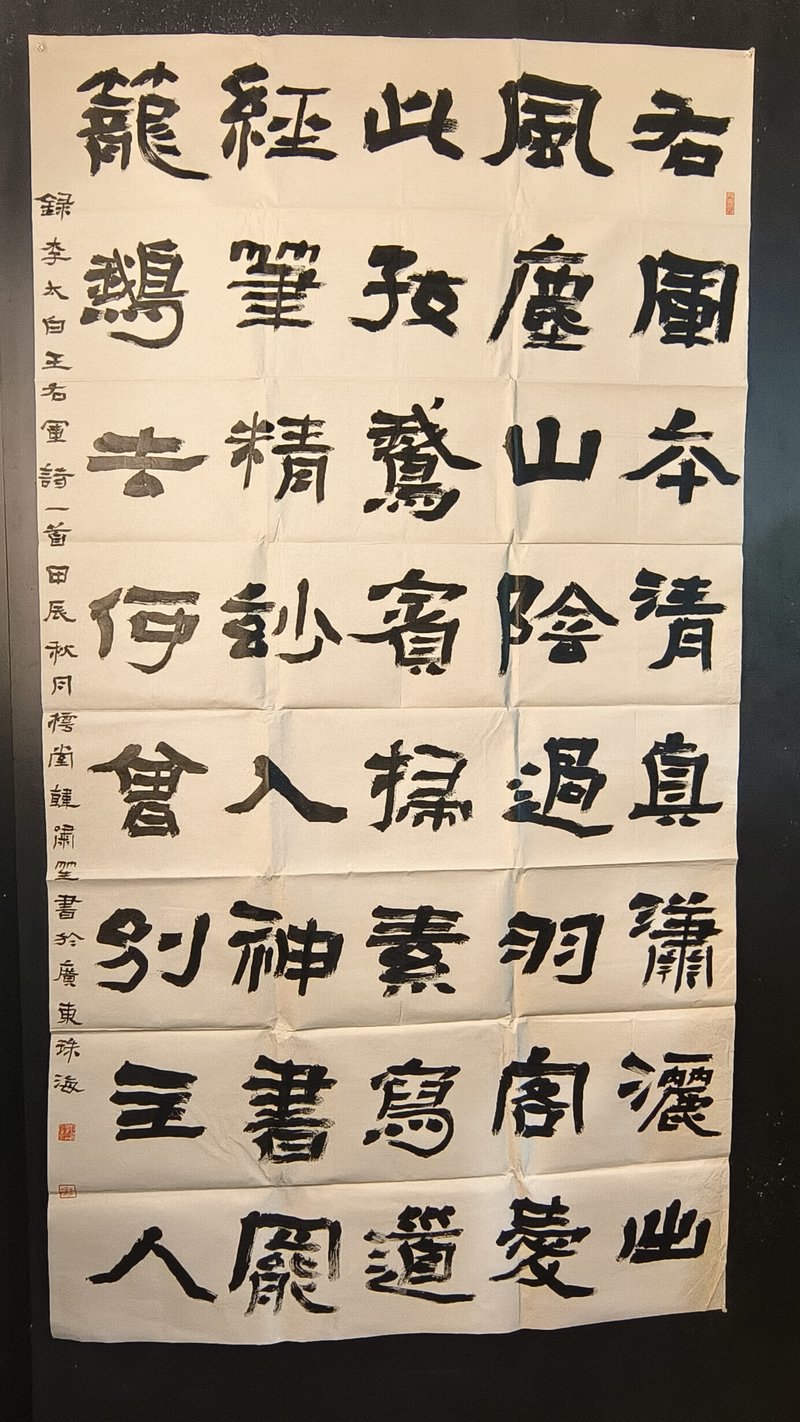 右軍本清真瀟灑出
風塵山陰過羽客愛
此好鵞賓掃素寫道
經筆精玅入神書罷
籠鵝去何曾別主人
錄李太白王右軍詩一首甲辰秋月樗堂韓書於廣東珠海